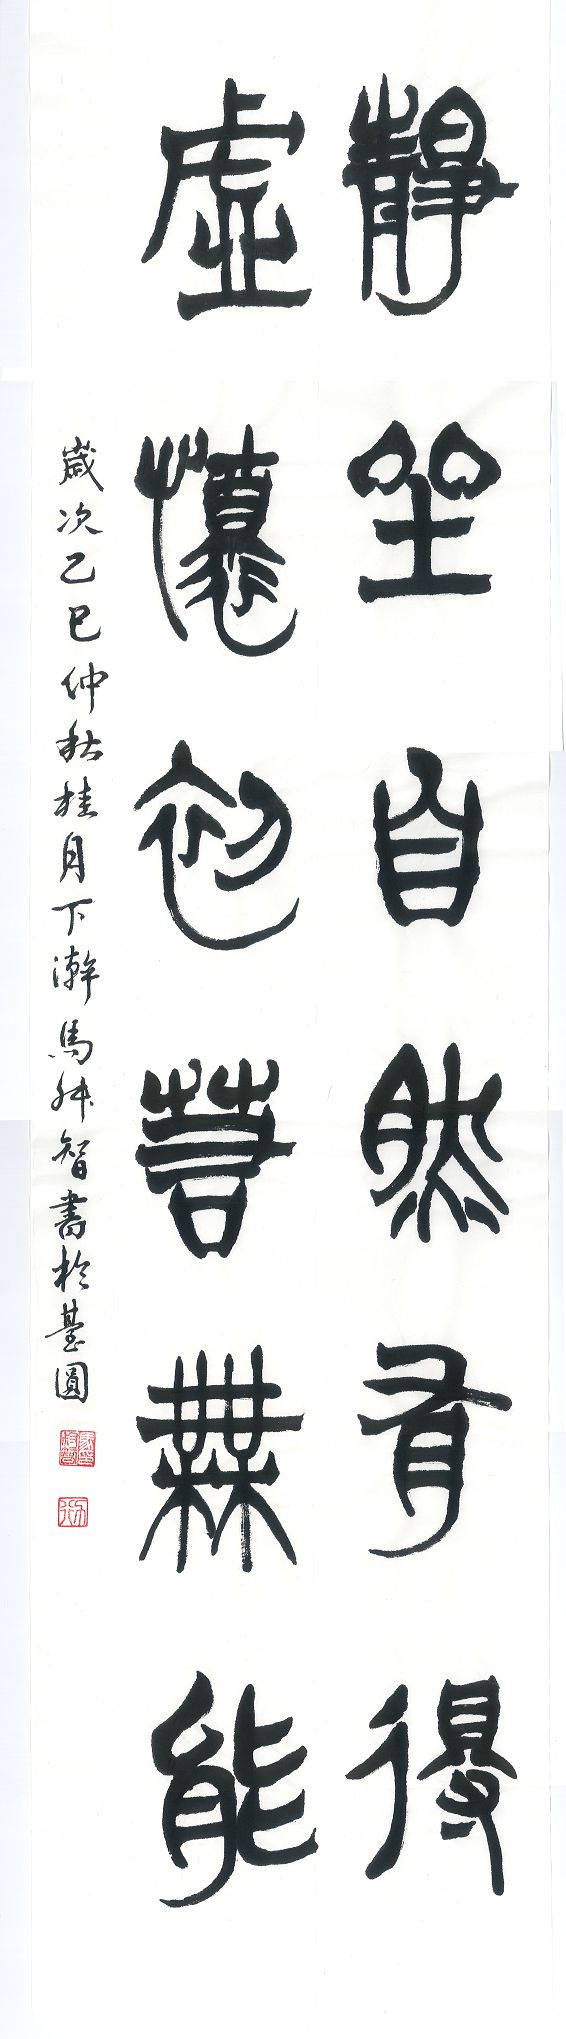 靜坐自然有得
虛懷初若無能
歲次乙巳仲秋桂月下澣馬智書於臺圓